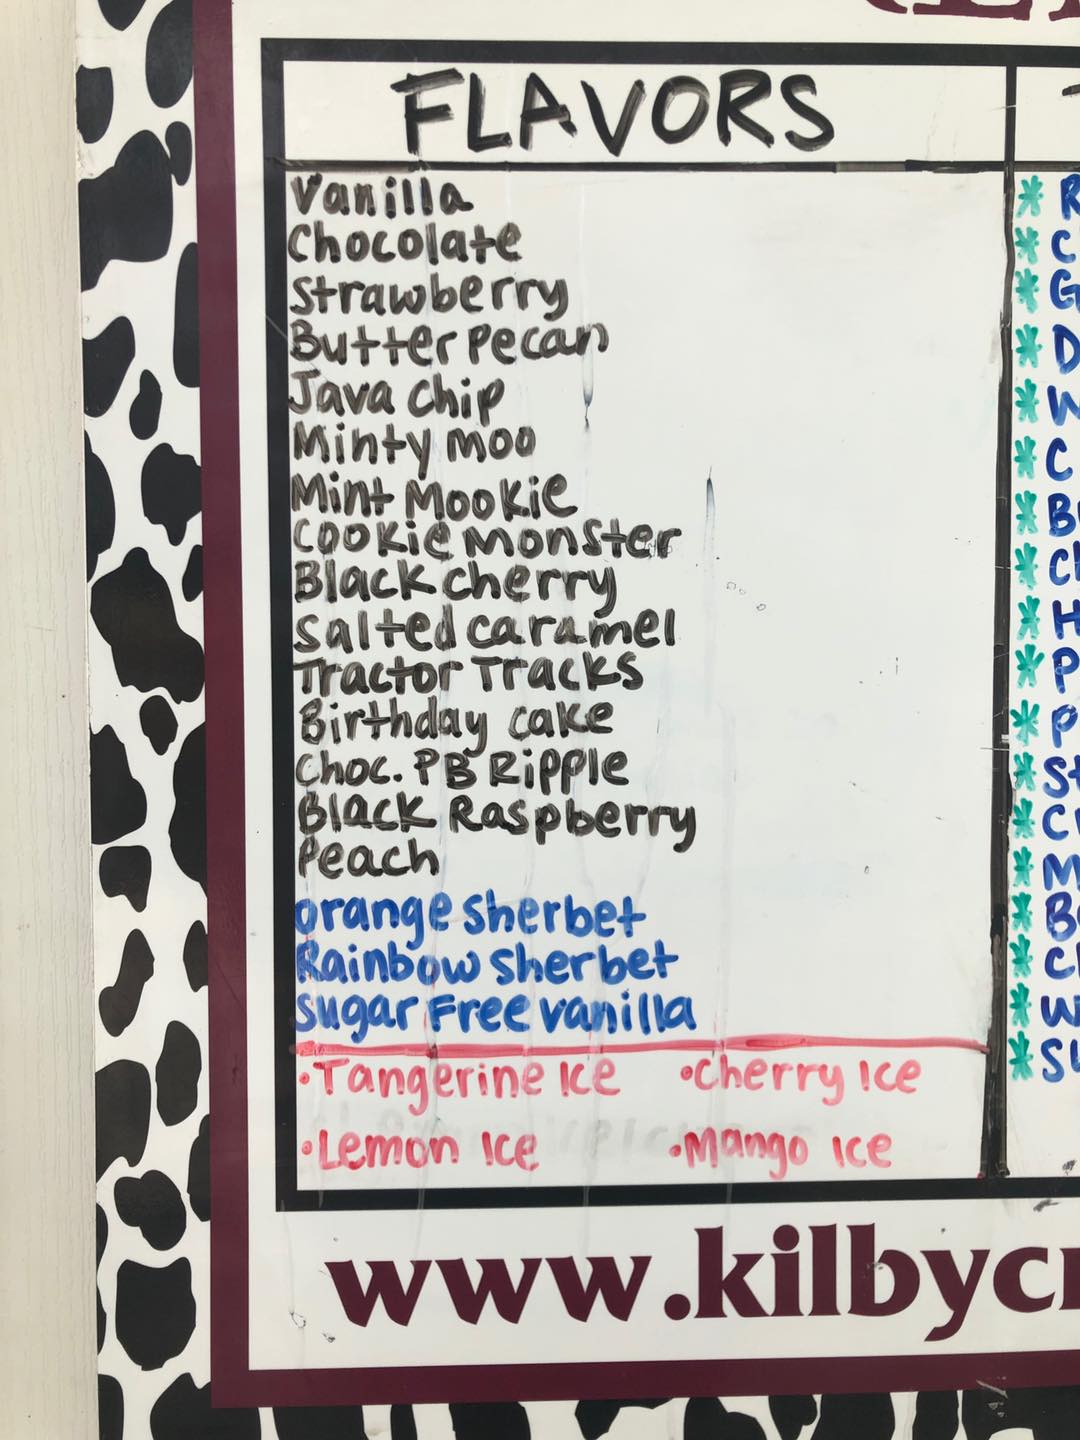 FLAVORS
Vanilla
Chocolate
Strawberry
Butter Pecan
Java Chip
Minty Moo
Mint Mookie
Cookie Monster
Black Cherry
Salted Caramel
Tractor Tracks
Birthday Cake
Choc. PB Ripple
Black Raspberry
Peach
Orange Sherbet
Rainbow Sherbet
Sugar Free Vanilla
•Tangerine Ice •Cherry Ice
•Lemon Ice •Mango Ice
www.kilbycr